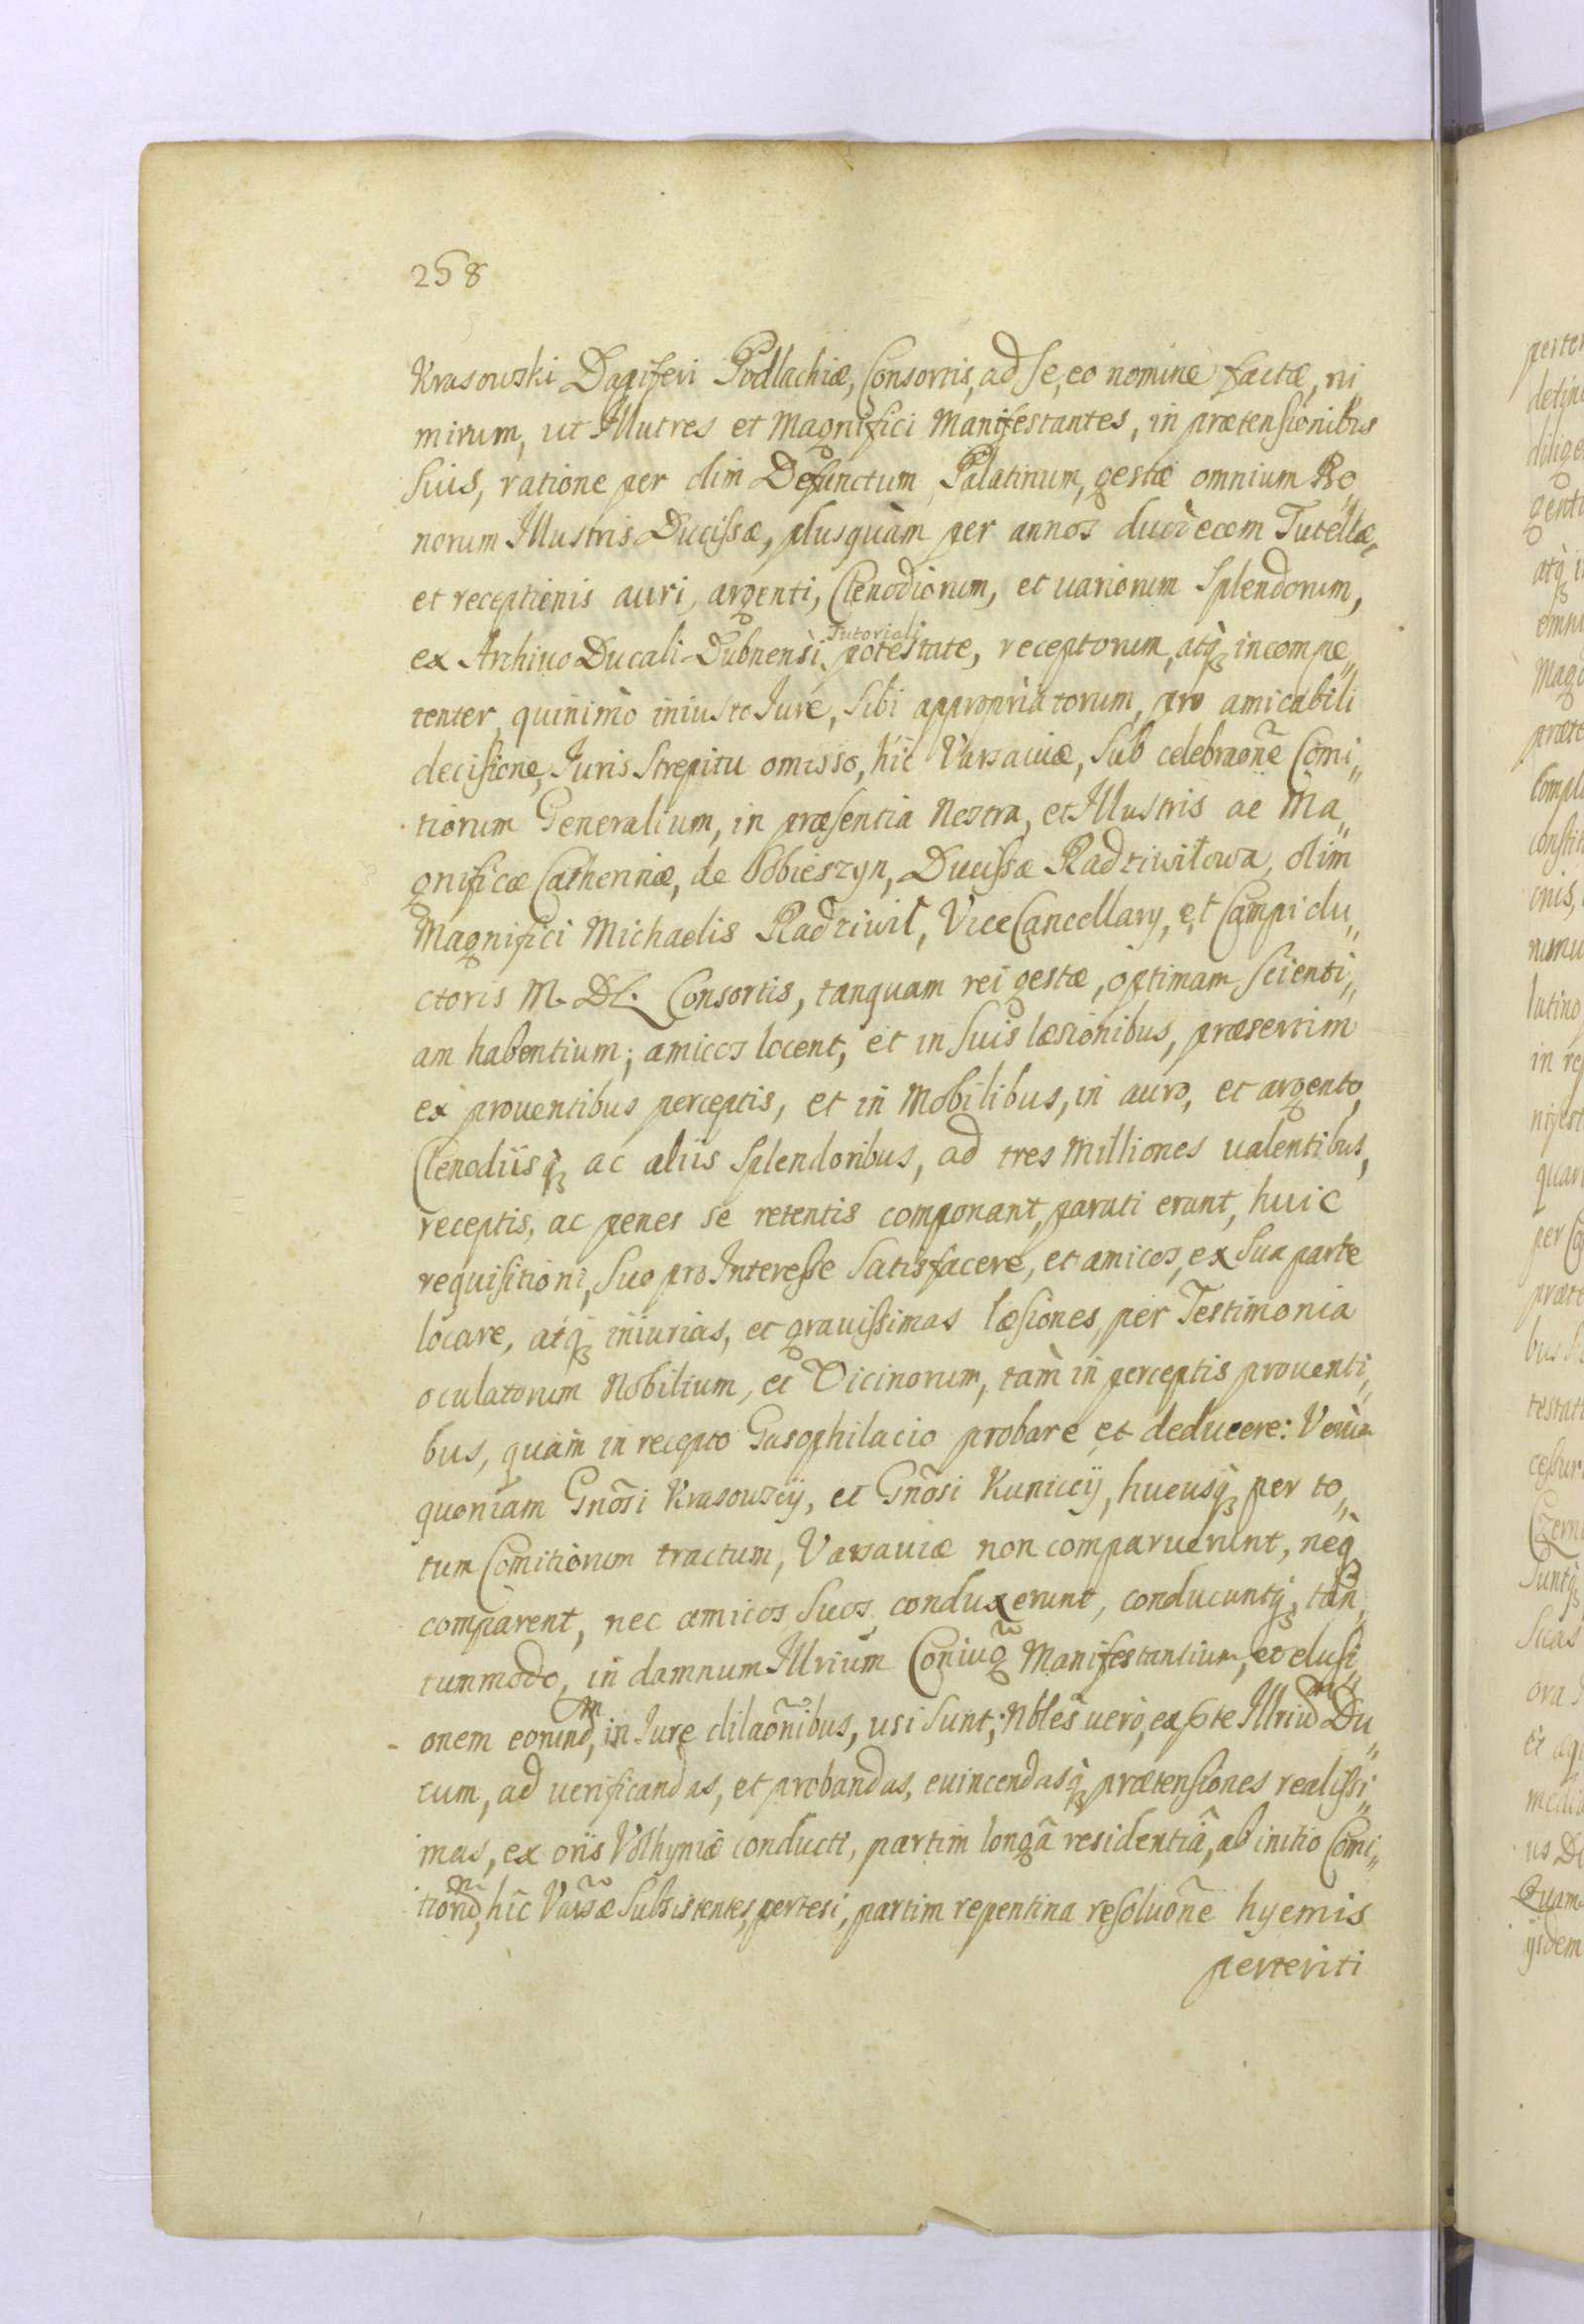 258
Krasowski Dapiferi Podlachiæ, Consortis, ad se, eo nomine factæ, ni„
mirum, ut Illutres et Magnifici Manifestantes, in prætensionibus
suis, ratione per olim Defunctum Palatinum, gestæ omnium Bo„
norum Illustris Ducissæ, plusquàm per annos duodecem Tutellæ,
et receptionis auri, argenti, Clenodiorum, et uariorum Splendorum,
ex Archiuo Ducali Dubnensi, Tutoriali potestate, receptorum, atq₃ incompe„
tenter, quinimò iniusto Iure, sibi appropriatorum, pro amicabili
decisione, Iuris strepitu omisso, hîc Varsauiæ, sub celebraõne Comi„
tiorum Generalium, in præsentia Nostra, et Illustris ac Ma„
gnificæ Catherinæ, de Sobieszyn, Ducissæ Radziwiłowa, olim
Magnifici Michaelis Radziwił, ViceCancellary, et Campidu„
ctoris M. D L. Consortis, tanquam rei gestæ, optimam scienti„
am habentium; amicos locent, et in suis læsionibus, præsertim
ex prouentibus perceptis, et in Mobilibus, in auro, et argento,
Clenodiisq₃ ac aliis Splendoribus, ad tres Milliones ualentibus,
receptis, ac penes se retentis componant, parati erant, huic
requisitioni, suo pro Interesse satisfacere, et amicos, ex sua parte
locare, atq₃ iniurias, et grauissimas læsiones, per Testimonia
oculatorum Nobilium, et Vicinorum, tam in perceptis prouenti„
bus, quàm in recepto Gasophilacio probare et deducere: Verùm
quoniam Gnõsi Krasouscÿ, et Gnõsi Kuniccÿ, hucusq₃ per to„
tum Comitiorum tractum, Varsauiæ non comparuerunt, neq₃
comparent, nec amicos suos conduxerunt, conducuntq₃, tan„
tummodo, in damnum Illrium Coniug̃ Manifestantium, et elusi„
onem eorund, in Iure dilaõnibus, usi sunt; Nbles uerò, ex pte Illriũ Du„
cum, ad uerificandas, et probandas, euincendasq₃ prætensiones realissi„
mas, ex oris Volhyniæ conducti, partim longâ residentiâ, ab initio Comi„
tiorũ, hîc Varsæ subsistentes, pertesi, partim repentina resoluõne hyemis
perterriti